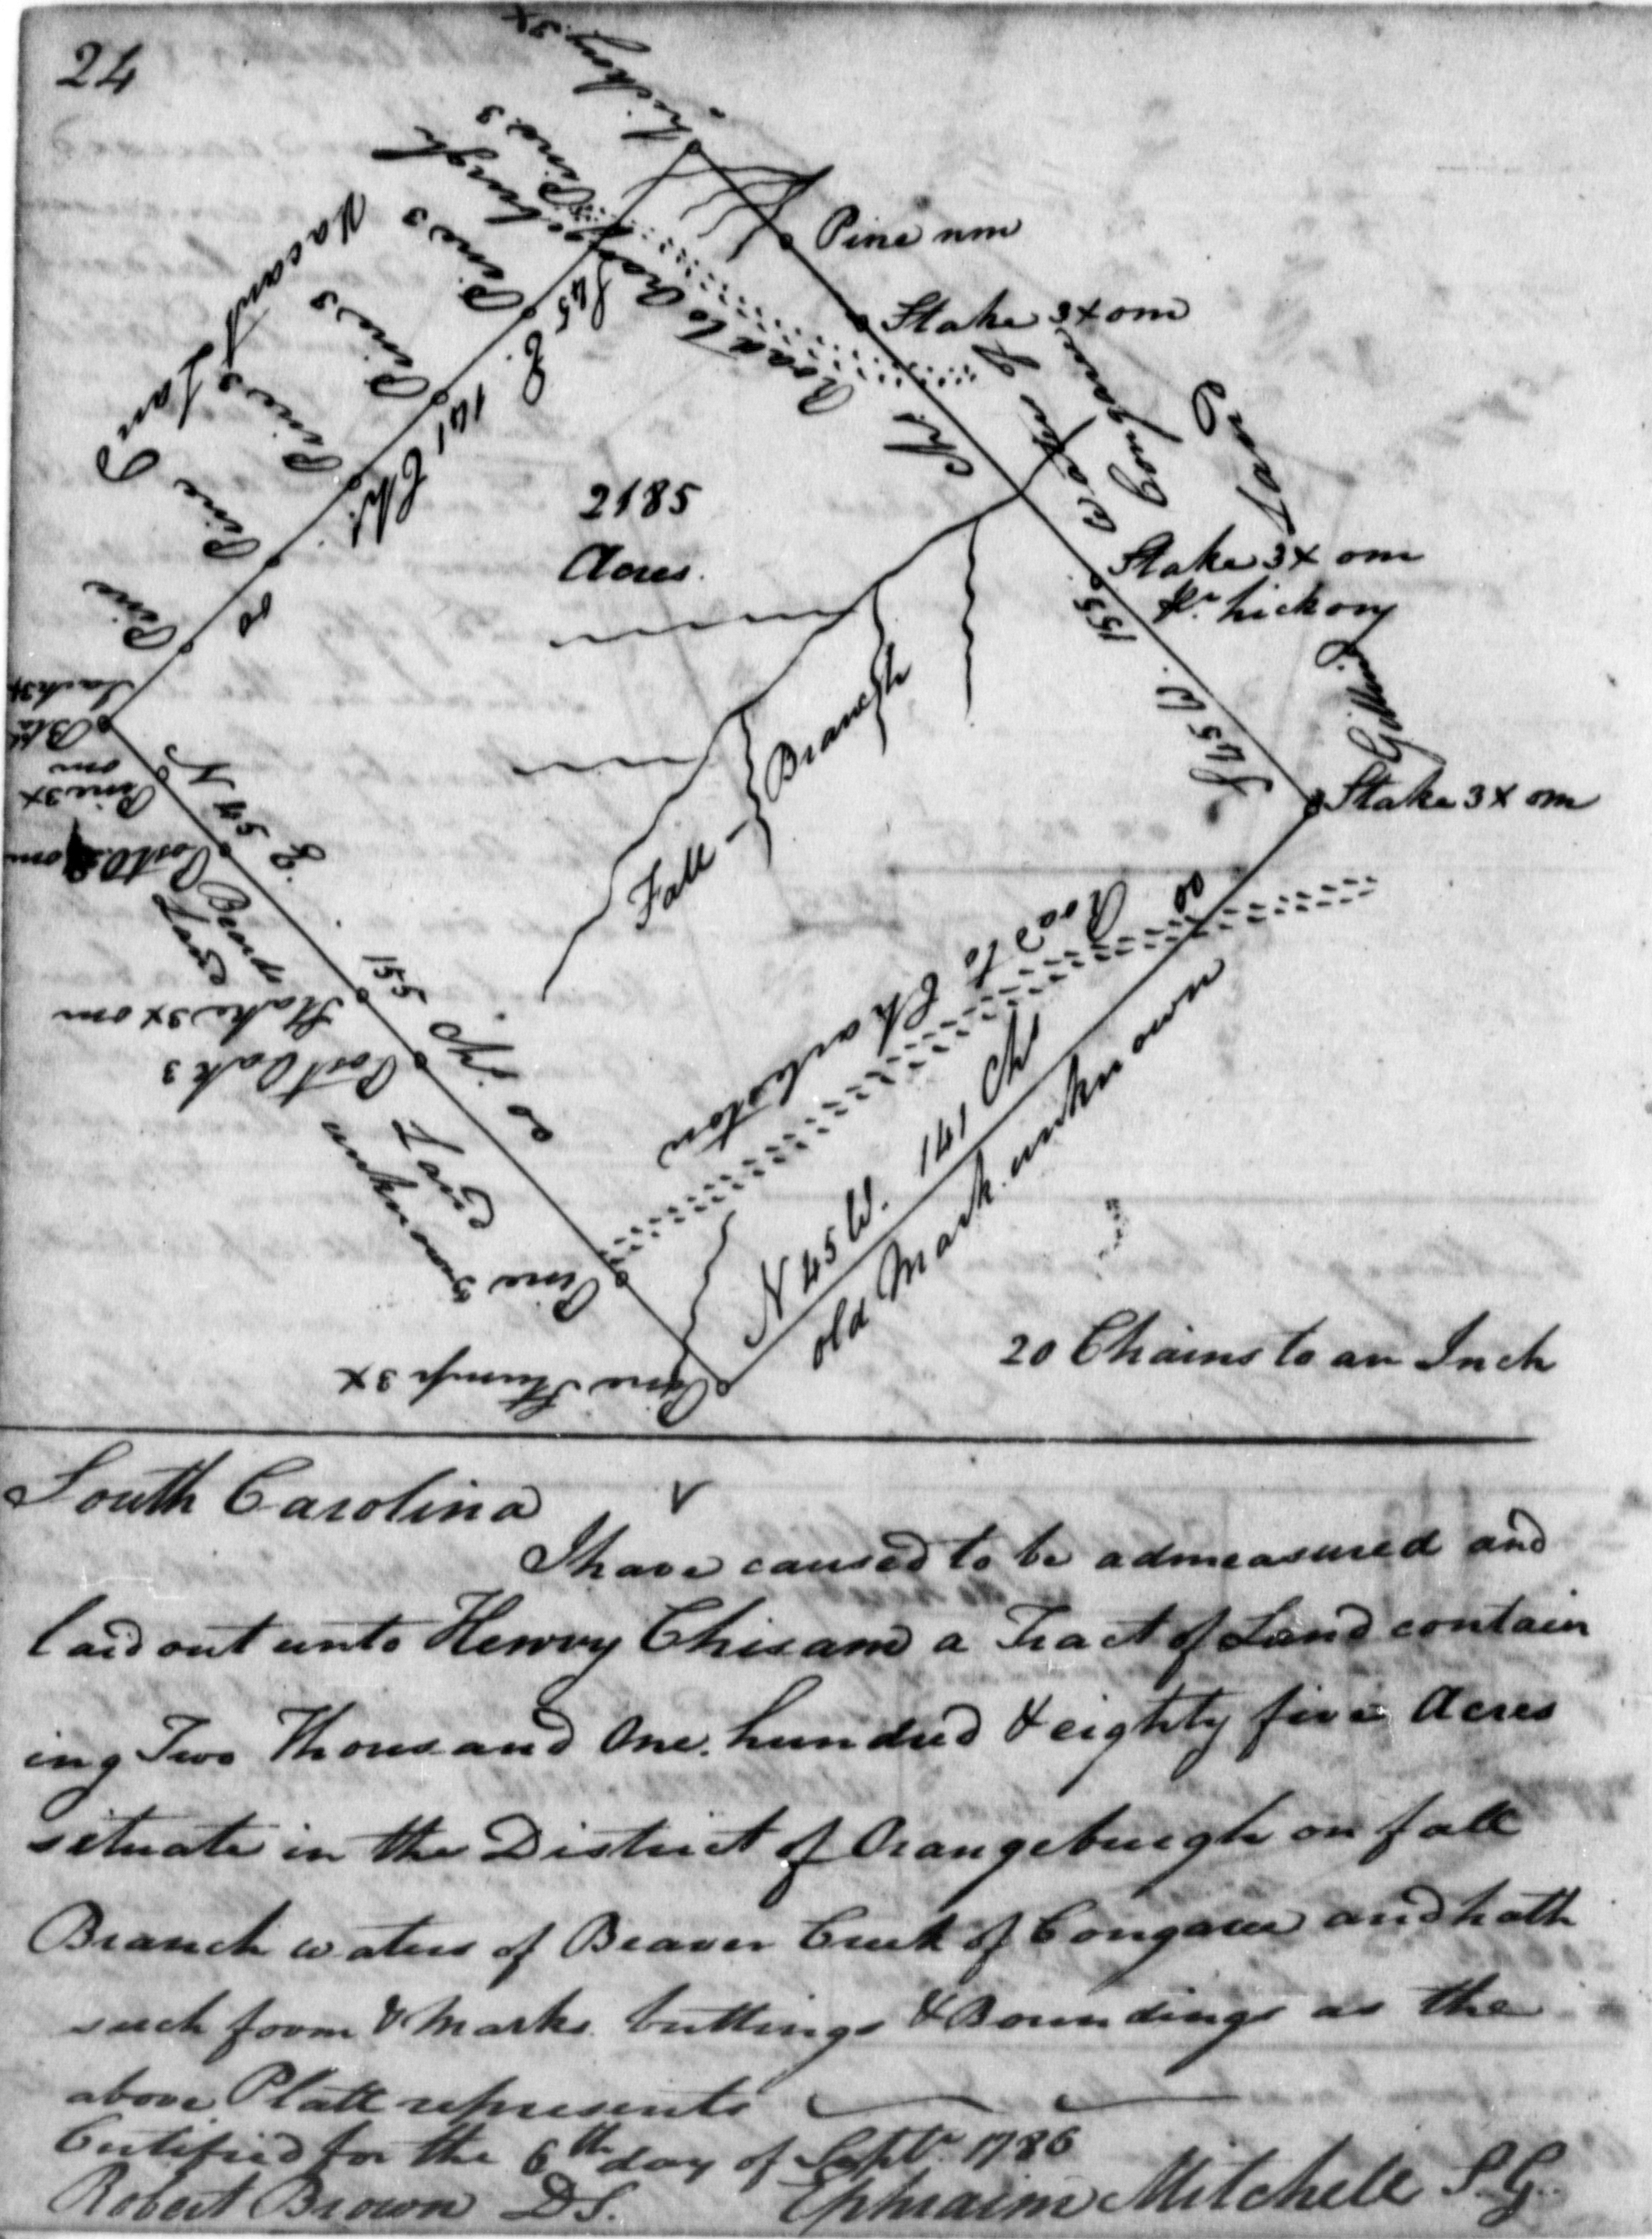 24
hickory 3x
Pine 3
Pine nm
Stake 3x om
Road to Orangeburgh
Pine 3
Pine 3
Pine 3
Pine
Pine
Vacant Land
S 45 E. 141 Chs.
2185
Acres.
Chs
155
S 45 W.
Waters of
Congaree
Land
Stake 3x om
hickory
Stake 3x om
Fall Branch
Pine 3x
om
om
N 45 E.
155
Land
Stake 3x om
Post Oak 3
Land
unknown
Pine 3
Pine Stump 3x
Road to Charleston
N 45 W. 141 Chs
old Mark unknown
20 Chains to an Inch
South Carolina
I have caused to be admeasured and
laid out unto Henry Chisam a Tract of Land contain
ing Two Thousand One hundred & eighty five Acres
situate in the District of Orangeburgh on fall
Branch waters of Beaver Creek of Congaree and hath
such form & marks buttings & Boundings as the
above Platt represents
Certified for the 6th day of Septr. 1786
Robert Brown D S. Ephraim Mitchell S. G.